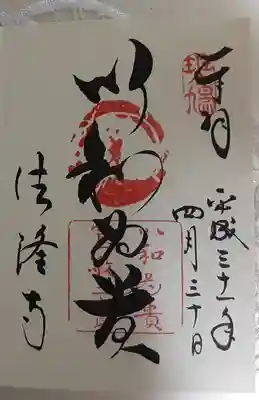 奉拝
平成三十一年
四月三十日
以和為貴
法隆寺
以和為貴